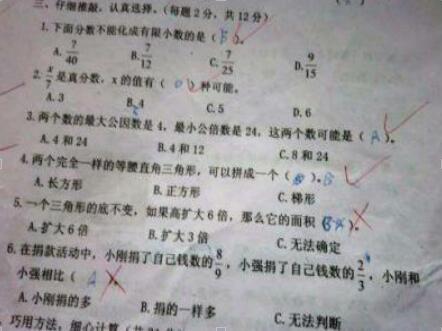 三、仔细推敲，认真选择。（每题2分，共12分）
1.下面分数不能化成有限小数的是（B）。
A. 7/40 B. 7/12 C. 7/25 D. 9/15
2. x/7 是真分数，x的值有（ ）种可能。
A.3 B.4 C.5 D.6
3.两个数的最大公因数是4，最小公倍数是24，这两个数可能是（A）。
A.4和24 B.4和12 C.8和24
4.两个完全一样的等腰直角三角形，可以拼成一个（ ）。B
A.长方形 B.正方形 C.梯形
5.一个三角形的底不变，如果高扩大6倍，那么它的面积（ ）。
A.扩大6倍 B.扩大3倍 C.无法确定
6.在捐款活动中，小刚捐了自己钱数的 8/9 ，小强捐了自己钱数的 2/3 ，小刚和
小强相比（A）。
A.小刚捐的多 B.捐的一样多 C.无法判断
巧用方法，细心计算